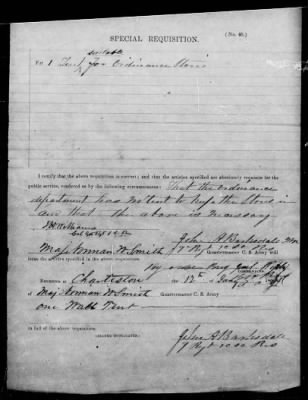 SPECIAL REQUISITION.
(No. 40.)
suitable
For 1 Tent for Ordinance Stores
I certify that the above requisition is correct; and that the articles specified are absolutely requisite for the
public service, rendered so by the following circumstances: That the ordinance
department has no tent to keep the Stores in
and that the above is necessary
John A Barksdale
Maj. Norman W Smith Quartermaster C. S. Army
issue the articles specified in the above requisition.
By order
Received at Charleston the 12th of July
Maj Norman W Smith Quartermaster C. S. Army
one Wall Tent
in full of the above requisition.
(SIGNED DUPLICATES.)
John A Barksdale